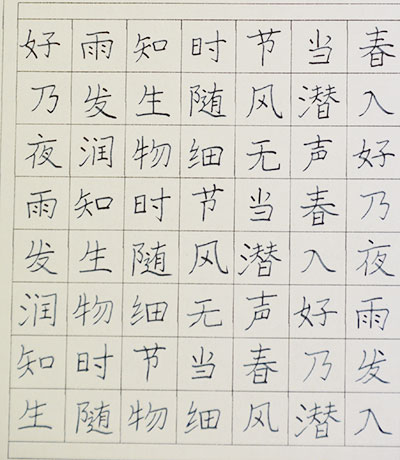 好雨知时节当春
乃发生随风潜入
夜润物细无声好
雨知时节当春乃
发生随风潜入夜
润物细无声好雨
知时节当春乃发
生随物细风潜入